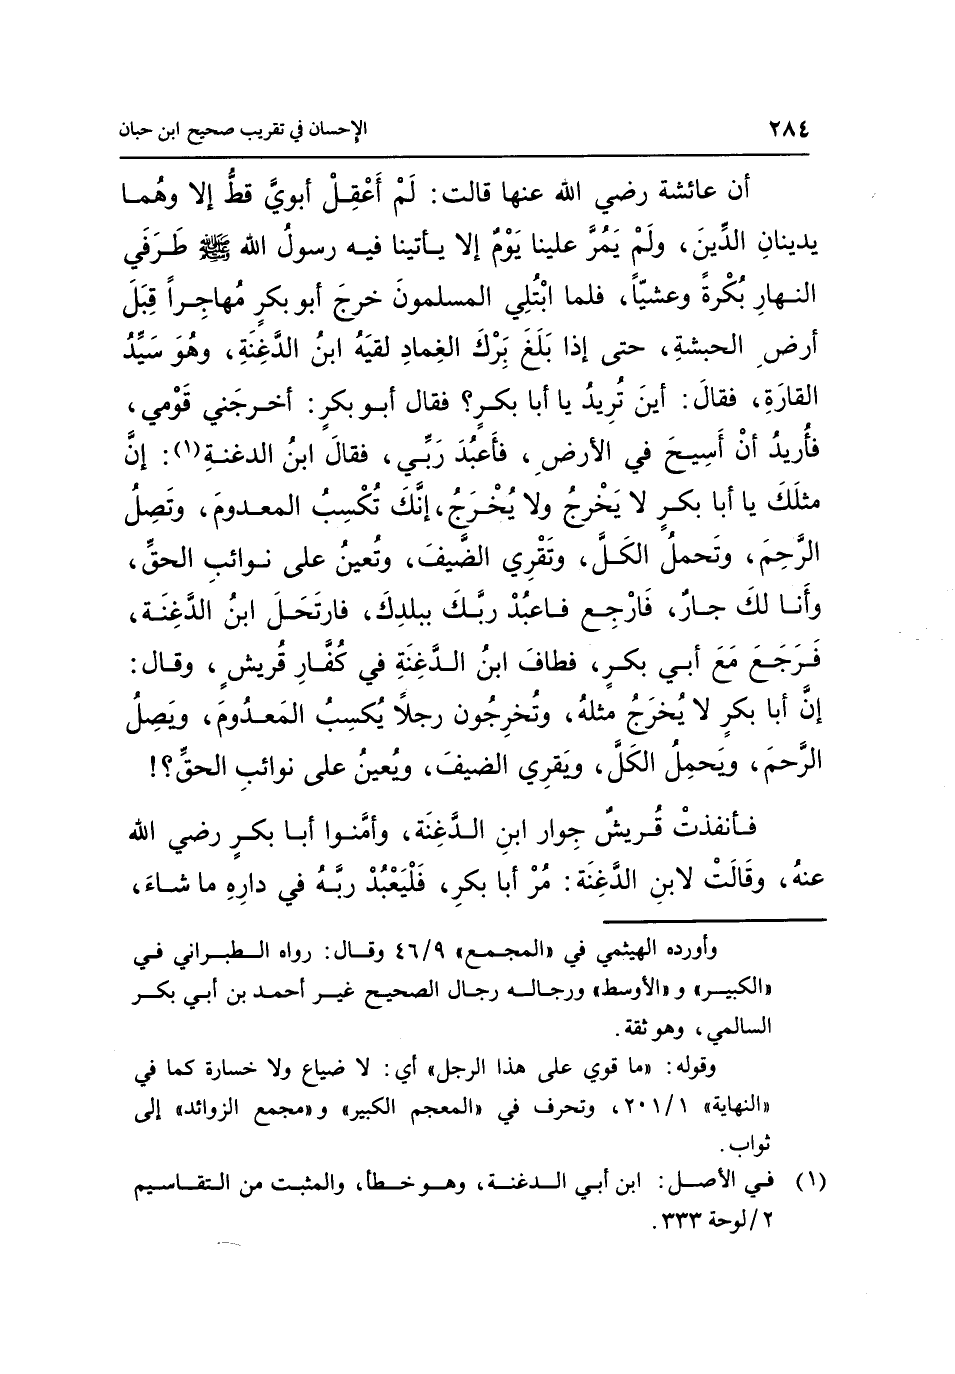 ٢٨٤ الإحسان في تقريب صحيح ابن حبان
أن عائشة رضي الله عنها قالت: لَمْ أَعْقِلْ أبويَّ قطُّ إلا وهُما
يدينانِ الدِّينَ، ولَمْ يَمُرَّ علينا يَوْمٌ إلا يأتينا فيه رسولُ الله ﷺ طَرَفَي
النهارِ بُكْرةً وعشيّاً، فلما ابْتُلِي المسلمونَ خرجَ أبو بكرٍ مُهاجِراً قِبَلَ
أرضِ الحبشةِ، حتى إذا بَلَغَ بِرْكَ الغِمادِ لقيَهُ ابنُ الدَّغِنَةِ، وهُوَ سَيِّدُ
القارَةِ، فقالَ: أينَ تُرِيدُ يا أبا بكرٍ؟ فقال أبو بكرٍ: أخرجَني قَوْمي،
فأُريدُ أنْ أَسِيحَ في الأرضِ، فأَعبُدَ رَبِّي، فقالَ ابنُ الدغنةِ(١): إنَّ
مثلَكَ يا أبا بكرٍ لا يَخْرجُ ولا يُخْرَجُ، إنَّكَ تُكْسِبُ المعدومَ، وتَصِلُ
الرَّحِمَ، وتَحملُ الكَلَّ، وتَقْرِي الضَّيفَ، وتُعينُ على نوائبِ الحقِّ،
وأَنا لكَ جارٌ، فَارْجِع فاعبُدْ ربَّكَ ببلدِكَ، فارتَحَلَ ابنُ الدَّغِنَة،
فَرَجَعَ مَعَ أبي بكرٍ، فطافَ ابنُ الدَّغِنَةِ في كُفَّارِ قُريشٍ، وقال:
إنَّ أبا بكرٍ لا يُخرَجُ مثلهُ، وتُخرِجُون رجلاً يُكسِبُ المَعدُومَ، ويَصِلُ
الرَّحمَ، ويَحمِلُ الكَلَّ، ويَقرِي الضيفَ، ويُعينُ على نوائبِ الحقِّ؟!
فأنفذتْ قُريشٌ جِوار ابنِ الدَّغِنَة، وأمَّنوا أبا بكرٍ رضي الله
عنهُ، وقَالَتْ لابنِ الدَّغِنَة: مُرْ أبا بكرٍ، فَلْيَعْبُدْ ربَّهُ في دارِهِ ما شاءَ،
وأورده الهيثمي في «المجمع» ٤٦/٩ وقال: رواه الطبراني في
«الكبير» و«الأوسط» ورجاله رجال الصحيح غير أحمد بن أبي بكر
السالمي، وهو ثقة.
وقوله: «ما قوي على هذا الرجل» أي: لا ضياع ولا خسارة كما في
«النهاية» ٢٠١/١، وتحرف في «المعجم الكبير» و«مجمع الزوائد» إلى
ثواب.
(١) في الأصل: ابن أبي الدغنة، وهو خطأ، والمثبت من التقاسيم
٢/لوحة ٣٣٣.